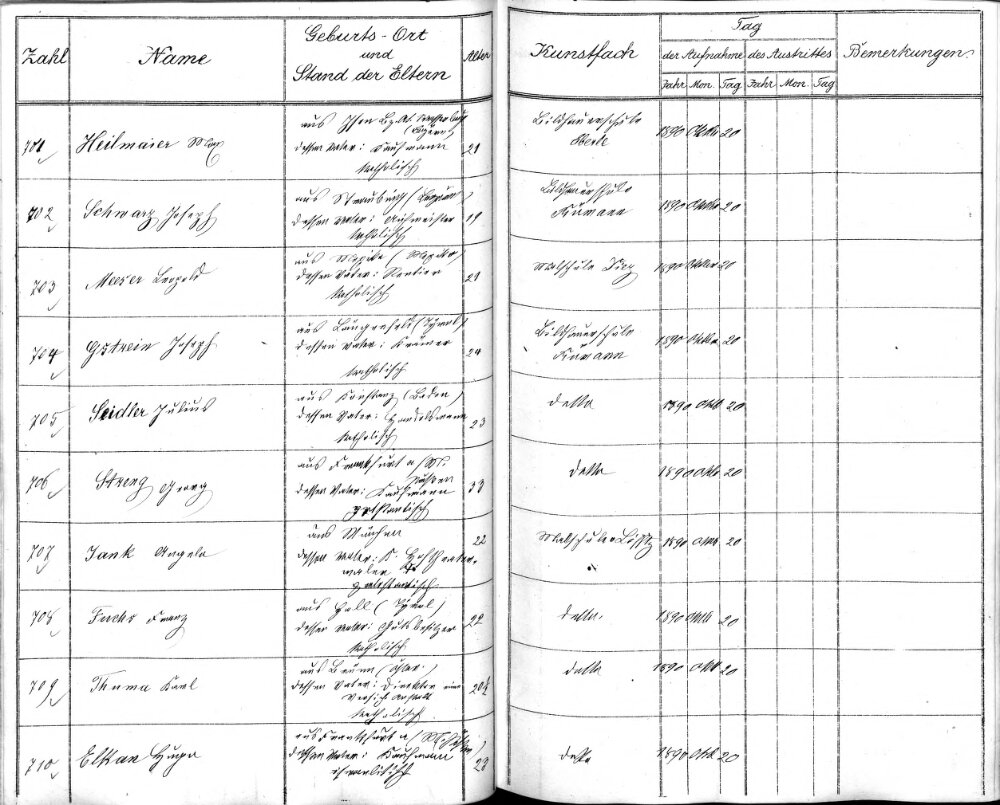 Zahl
Name
Geburts-Ort
und
Stand der Eltern
Alter
Kunstfach
Tag
der Aufnahme des Austrittes
Jahr Mon. Tag Jahr Mon. Tag
Bemerkungen.
701
Heilmaier Max
aus
dessen Vater: Kaufmann
katholisch
21
Bildhauerschule
Eberle
1890 Oktbr 20
702
Schwarz Joseph
aus Straubing
dessen Vater: Aichmeister
katholisch
19
Bildhauerschule
Rümann
1890 Oktbr 20
703
Meeser Leopold
aus
dessen Vater: Rentier
katholisch
Malschule
1890 Oktbr 20
704
Gstrein Joseph
aus Längenfeld (Tyrol)
dessen Vater: Krämer
katholisch
24
Bildhauerschule
Rümann
1890 Oktbr 20
705
Seidler Julius
aus Konstanz (Baden)
dessen Vater: Handelsmann
katholisch
23
detto
1890 Okt 20
706
Streng Georg
aus Frankfurt a/M.
dessen Vater: Kaufmann
33
detto
1890 Okt 20
707
Jank Angelo
aus München
dessen Vater: K. Hoftheater-
maler
protestantisch
22
Malschule
1890 Okt 20
708
Fuchs Franz
aus Hall (Tyrol)
dessen Vater: Gutsbesitzer
katholisch
22
detto.
1890 Okt 20
709
Thuma Karl
aus Brünn (Öster.)
dessen Vater: Direktor einer
Versich. Anstalt
katholisch
20½
detto
1890 Okt 20
710
Elkan Hugo
aus Frankfurt a/M.
dessen Vater: Kaufmann
israelitisch
detto
1890 Okt 20